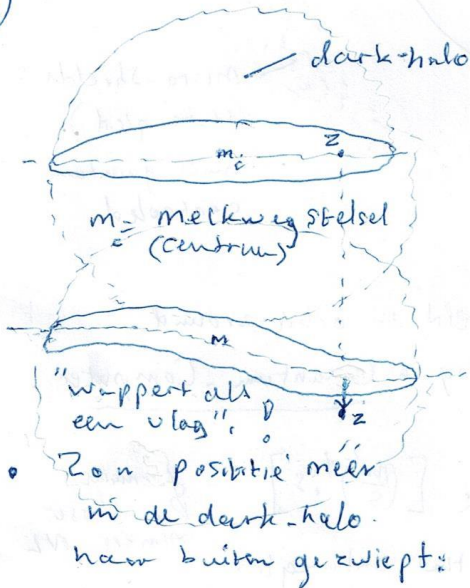 dark-halo
mc Z
mc = melkwegstelsel
(centrum)
M
"wappert als
een vlag". !
z
• Zon positie méér
in de dark-halo.
naar buiten gezwiept: